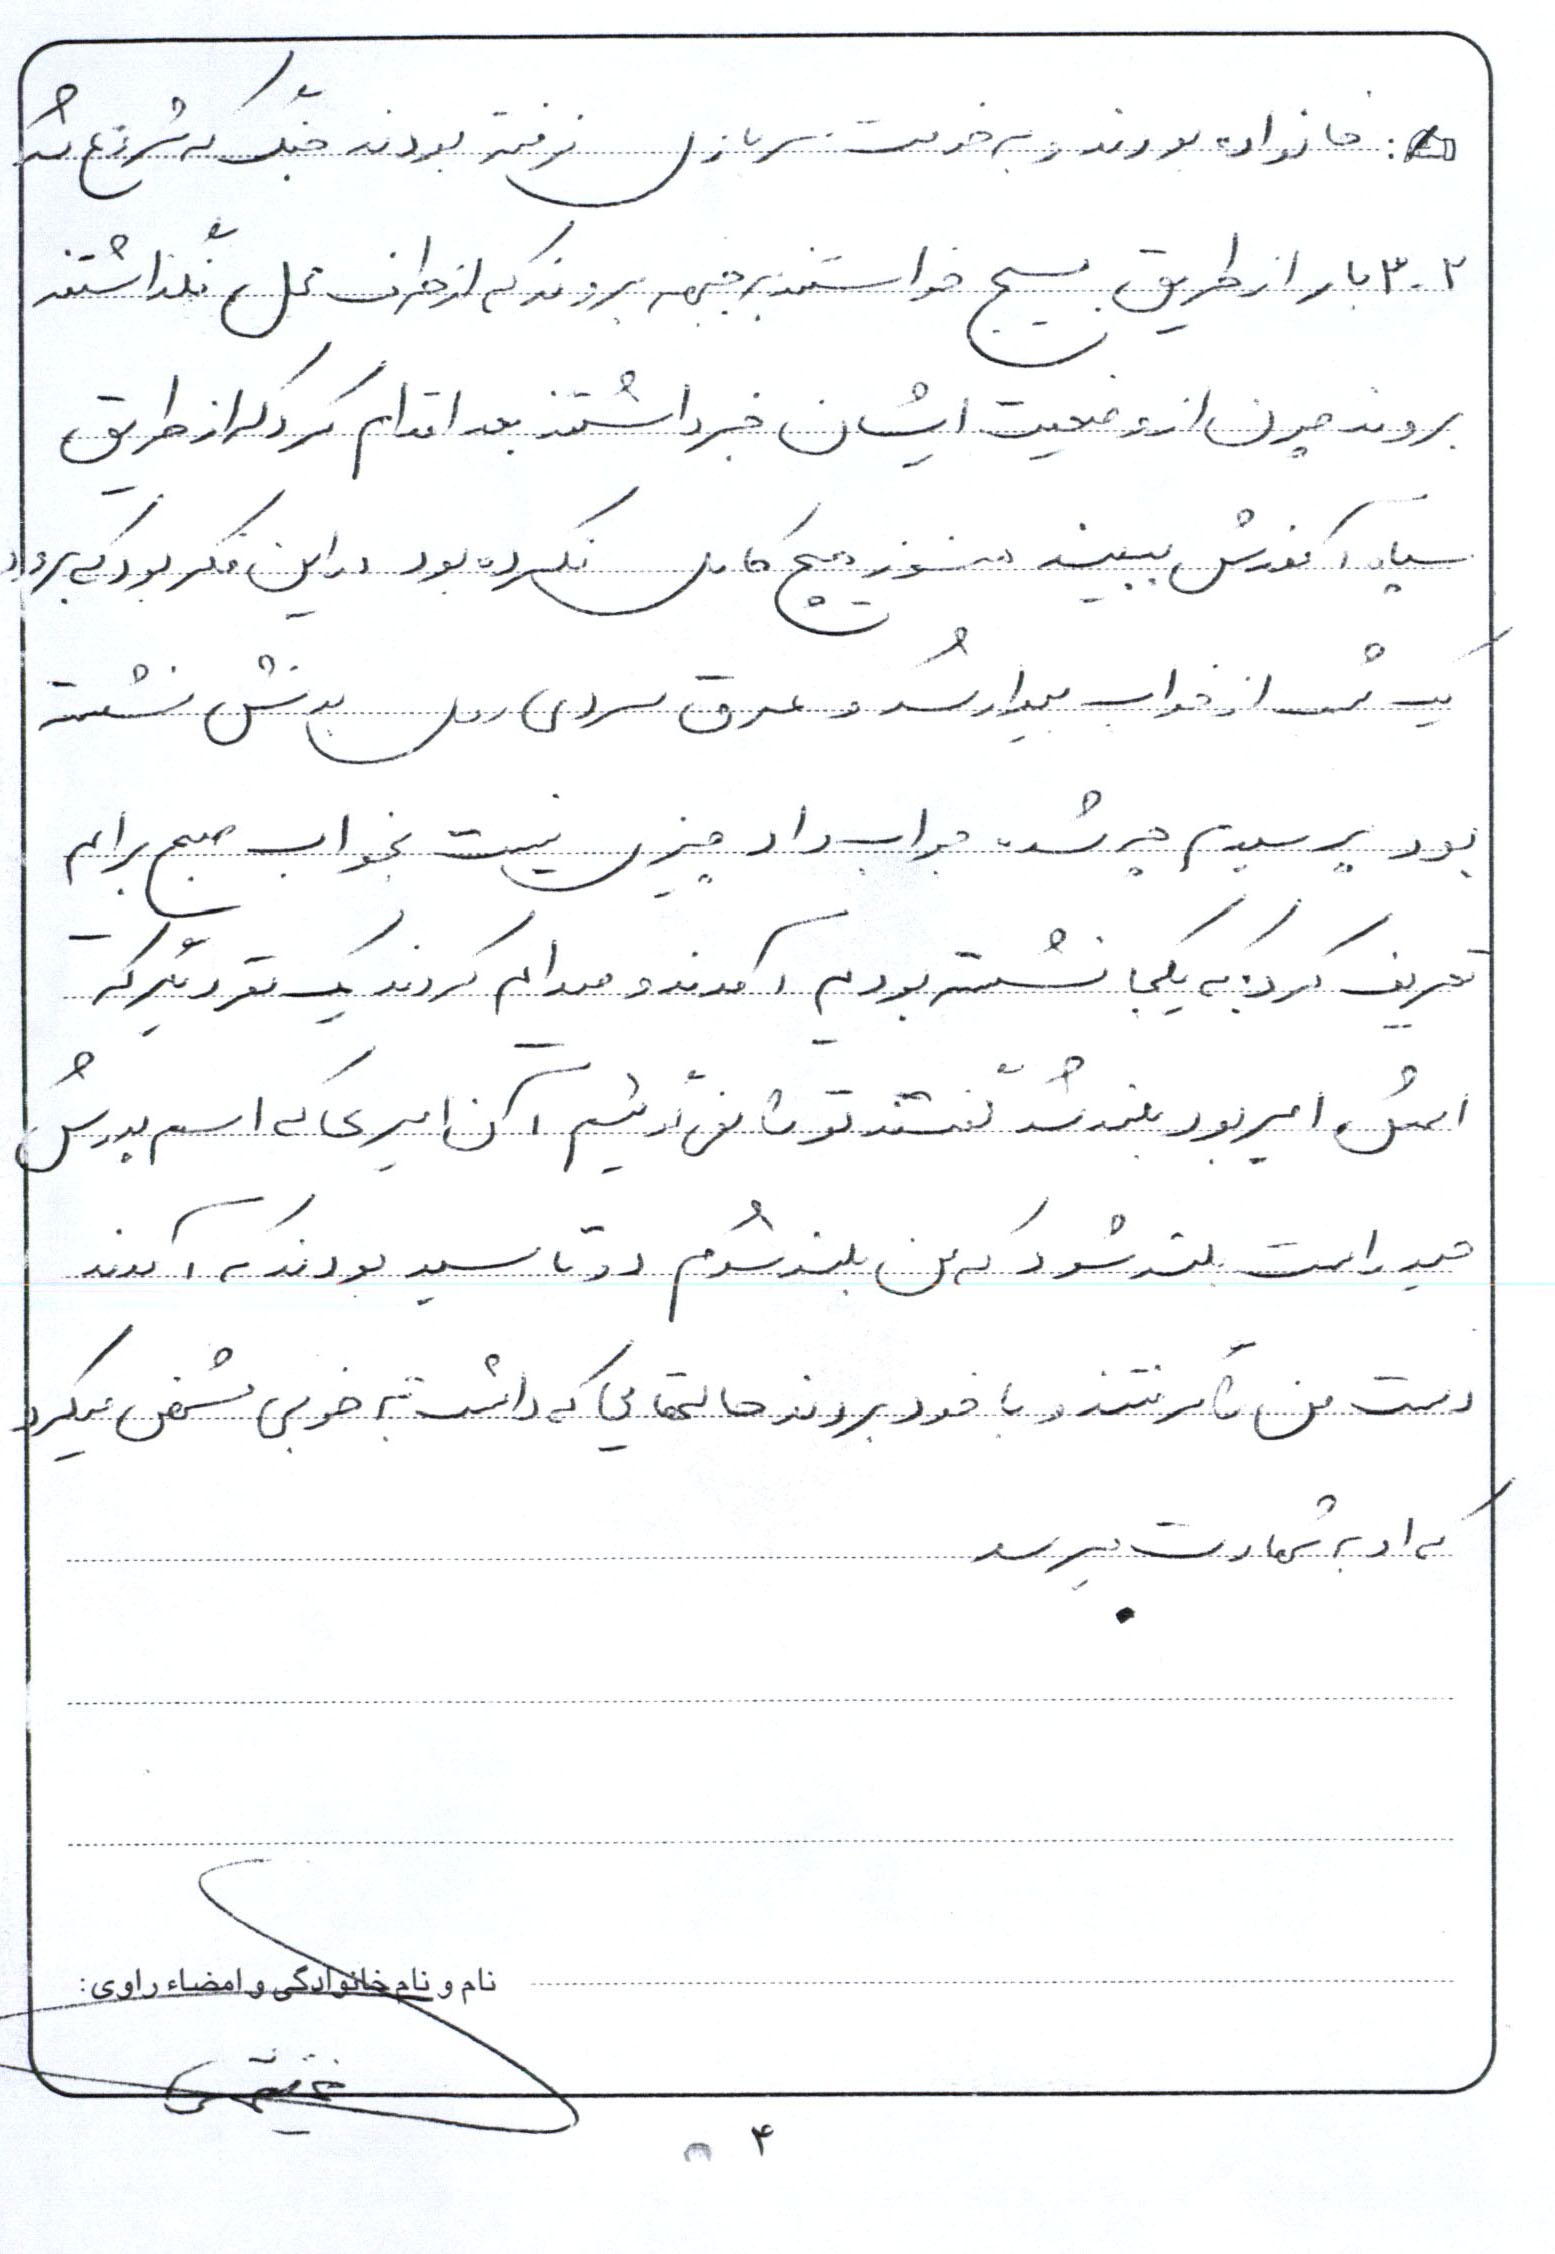 خانواده بودند و به خدمت سربازی نرفته بودند جنگ که شروع شد
۲-۳ بار از طریق بسیج خواستند به جبهه بروند که از طرف محل نگذاشتند
بروند چون از وضعیت ایشان خبر داشتند بعد اقدام کرد که از طریق
سپاه آموزش ببیند هنوز هیچ کاری نکرده بود در این فکر بود که برود
یک شب از خواب بیدار شد و عرق سردی روی بدنش نشسته
بود پرسیدم چه شده جواب داد چیزی نیست بخواب صبح برایم
تعریف کرد که یکجا نشسته بودیم آمدند و صدایم کردند یک نفر دیگر که
اسمش امیر بود بلند شد گفتند تو را نمی‌گوئیم آن امیری که اسم پدرش
حیدر است بلند شود که من بلند شدم دو تا سید بودند که آمدند
دست من را گرفتند و با خود بردند حالتهایی که داشت به خوبی مشخص میکرد
که او به شهادت میرسد
نام و نام خانوادگی و امضاء راوی:
۴